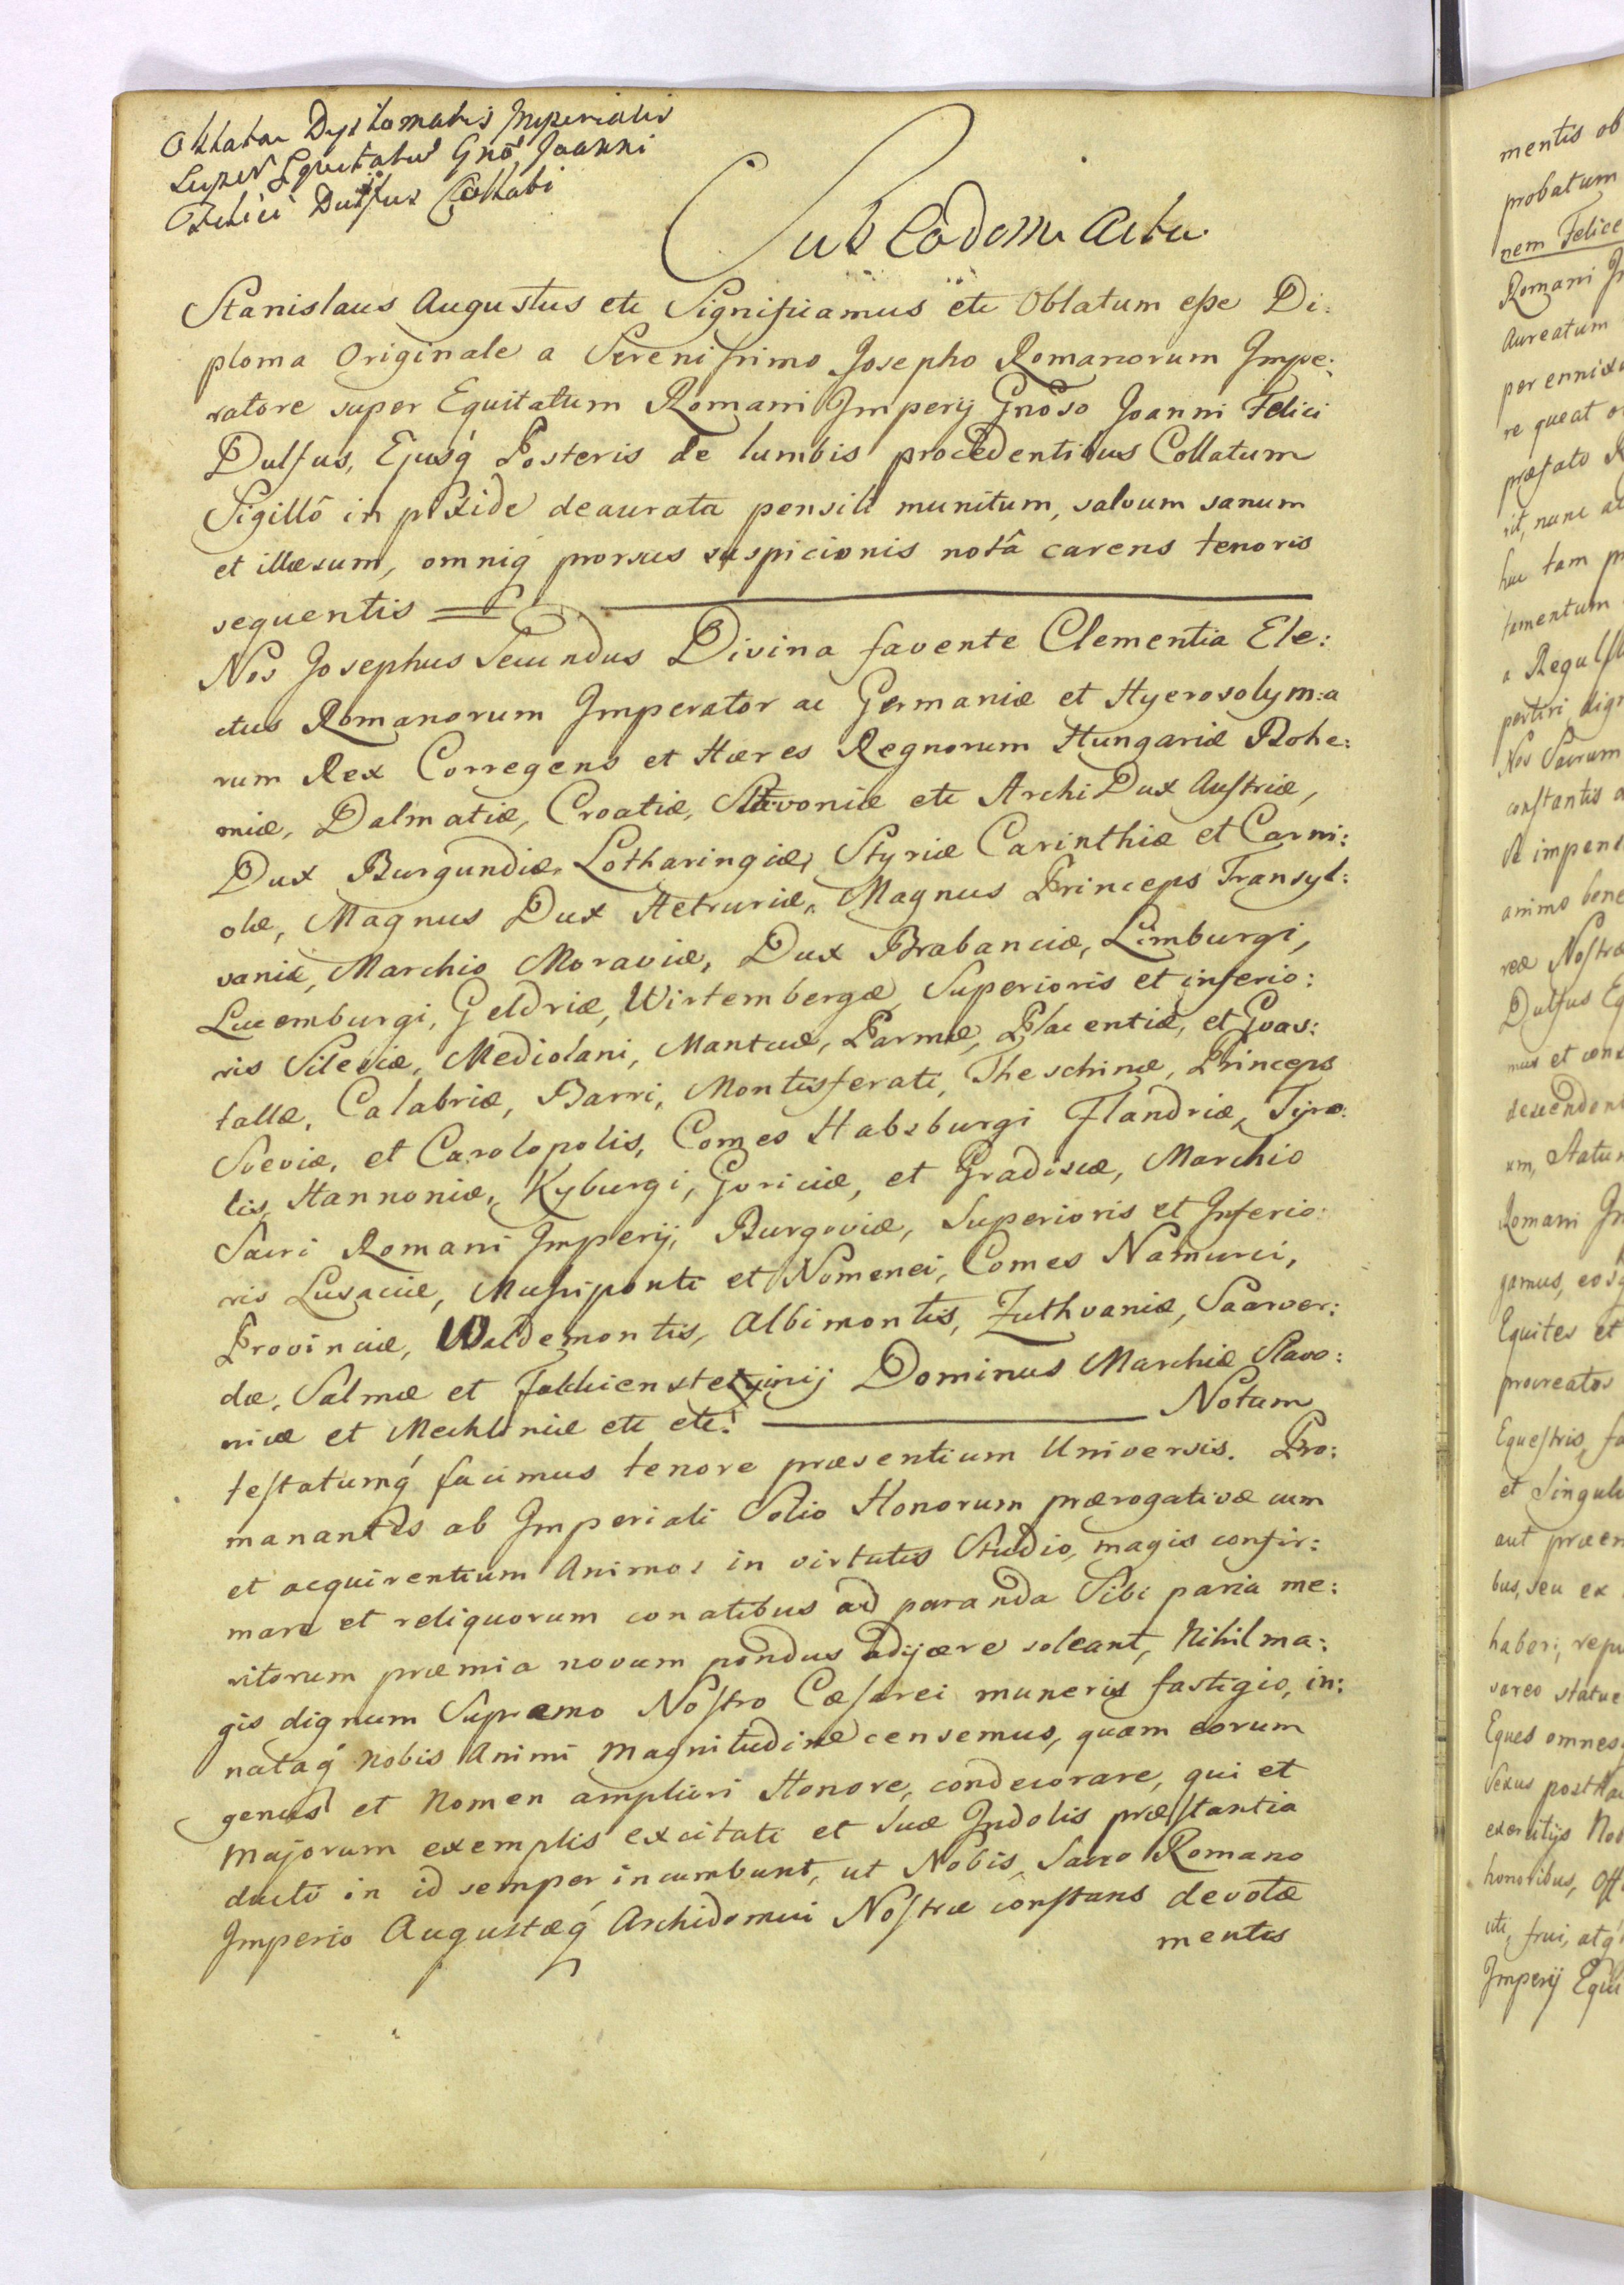 Oblata Dyplomatis Imperialis
super Equitatus Gnõ Joanni
Felici Dulfus Collati
Sub Eodem Actu
Stanislaus Augustus etc Significamus etc Oblatum eße Di:
ploma Originale a Serenißimo Josepho Romanorum Impe:
ratore super Equitatum Romani Imperij Gnõso Joanni Felici
Dulfus, Ejusq́ Posteris de lumbis procedentibus Collatum
Sigillô in pixide deaurata pensili munitum, salvum sanum
et illæsum, omniq́ prorsus suspicionis notâ carens tenoris
sequentis
Nos Josephus Secundus Divina favente Clementia Ele:
ctus Romanorum Imperator ac Germaniæ et Hyerosolym:a
rum Rex Corregens et Hæres Regnorum Hungariæ Bohe:
miæ, Dalmatiæ, Croatiæ, Slavoniæ etc Archi Dux Austriæ,
Dux Burgundiæ, Lotharingiæ, Styriæ Carinthiæ et Carni:
olæ, Magnus Dux Hetruriæ, Magnus Princeps Transyl:
vaniæ, Marchio Moraviæ, Dux Brabanciæ, Limburgi,
Lucemburgi, Geldriæ, Wirtembergæ, Superioris et inferio:
ris Silesiæ, Mediolani, Mantuæ, Parmæ, Placentiæ, et Guas:
tallæ, Calabriæ, Barri, Montisferati, Theschinæ, Princeps
Sueviæ, et Carolopolis, Comes Habsburgi Flandriæ, Tyro:
lis, Hannoniæ, Kyburgi, Goriciæ, et Gradiscæ, Marchio
Sacri Romani Imperij, Burgoviæ, Superioris et Inferio:
ris Lusaciæ, Mußiponti et Nomenei, Comes Namurci,
Provinciæ, Waldemontis, Albimontis, Zuthvaniæ, Saarver:
dæ, Salmæ et Falckiensteijnij Dominus Marchiæ Slavo:
nicæ et Mechliniæ etc etc: Notum
testatumq́ facimus tenore præsentium Universis. Pro:
manantes ab Imperiali Solio Honorum prærogativæ cum
et acquirentium Animos in virtutis Studio, magis confir:
mare et reliquorum conatibus ad paranda Sibi paria me:
ritorum præmia novum pondus adijcere soleant, Nihil ma:
gis dignum Supremo Nostro Cæsarei muneris fastigio, in:
nataq́ Nobis Animi Magnitudine censemus, quam eorum
genus et Nomen ampliori Honore, condecorare, qui et
Majorum exemplis excitati et Suæ Indolis præstantia
ducti in id semper incumbunt, ut Nobis, Sacro Romano
Imperio Augustæq́ Archidomui Nostræ constans devotæ
mentis
mentis ob
probatum
nem Felice
Romani
Aureatum
re queat
præfato
rit, nunc
huc tam
Nos Sacrum
constantis
animo bene
reæ Nostræ
Dulfus Eq
Romani
Equites et
procreatos
Equestris,
et Singuli
bus, seu ex
haberi, repu
Eques omnes
Sexus postha
exercitijs
honoribus,
uti, frui, atq́
Imperij Equi